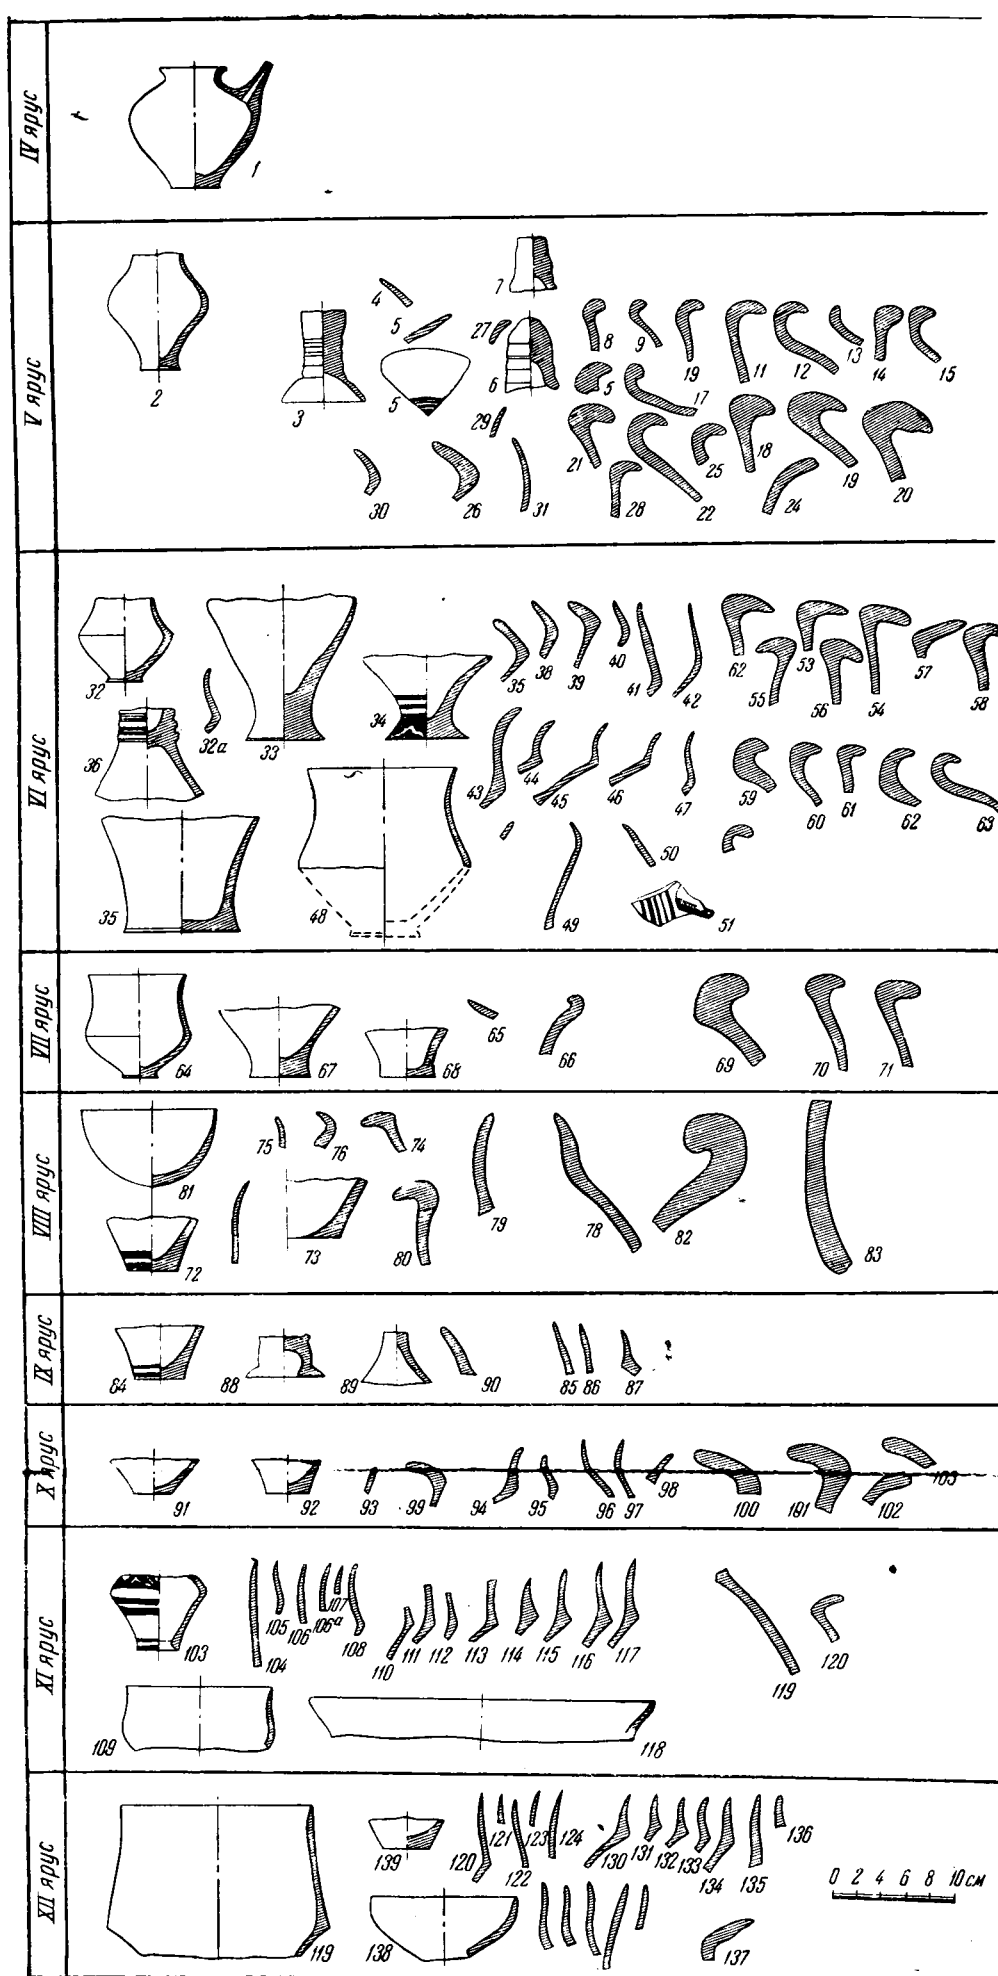 IV ярус
1
V ярус
7
4
5
27
8
9
19
11
12
13
14
15
2
3
5
6
5
17
29
21
25
18
19
20
30
26
31
28
22
24
VI ярус
32
32а
33
34
35
38
39
40
41
42
62
53
55
56
54
57
58
36
43
44
45
46
47
59
60
61
62
63
35
48
49
50
51
VII ярус
64
67
68
65
66
69
70
71
VIII ярус
81
75
76
74
79
78
82
83
72
73
80
IX ярус
84
88
89
90
85
86
87
X ярус
91
92
93
99
94
95
96
97
98
100
101
102
103
XI ярус
103
104
105
106
106а
107
108
110
111
112
113
114
115
116
117
119
120
109
118
XII ярус
119
139
120
121
122
123
124
130
131
132
133
134
135
136
0 2 4 6 8 10 см
138
137